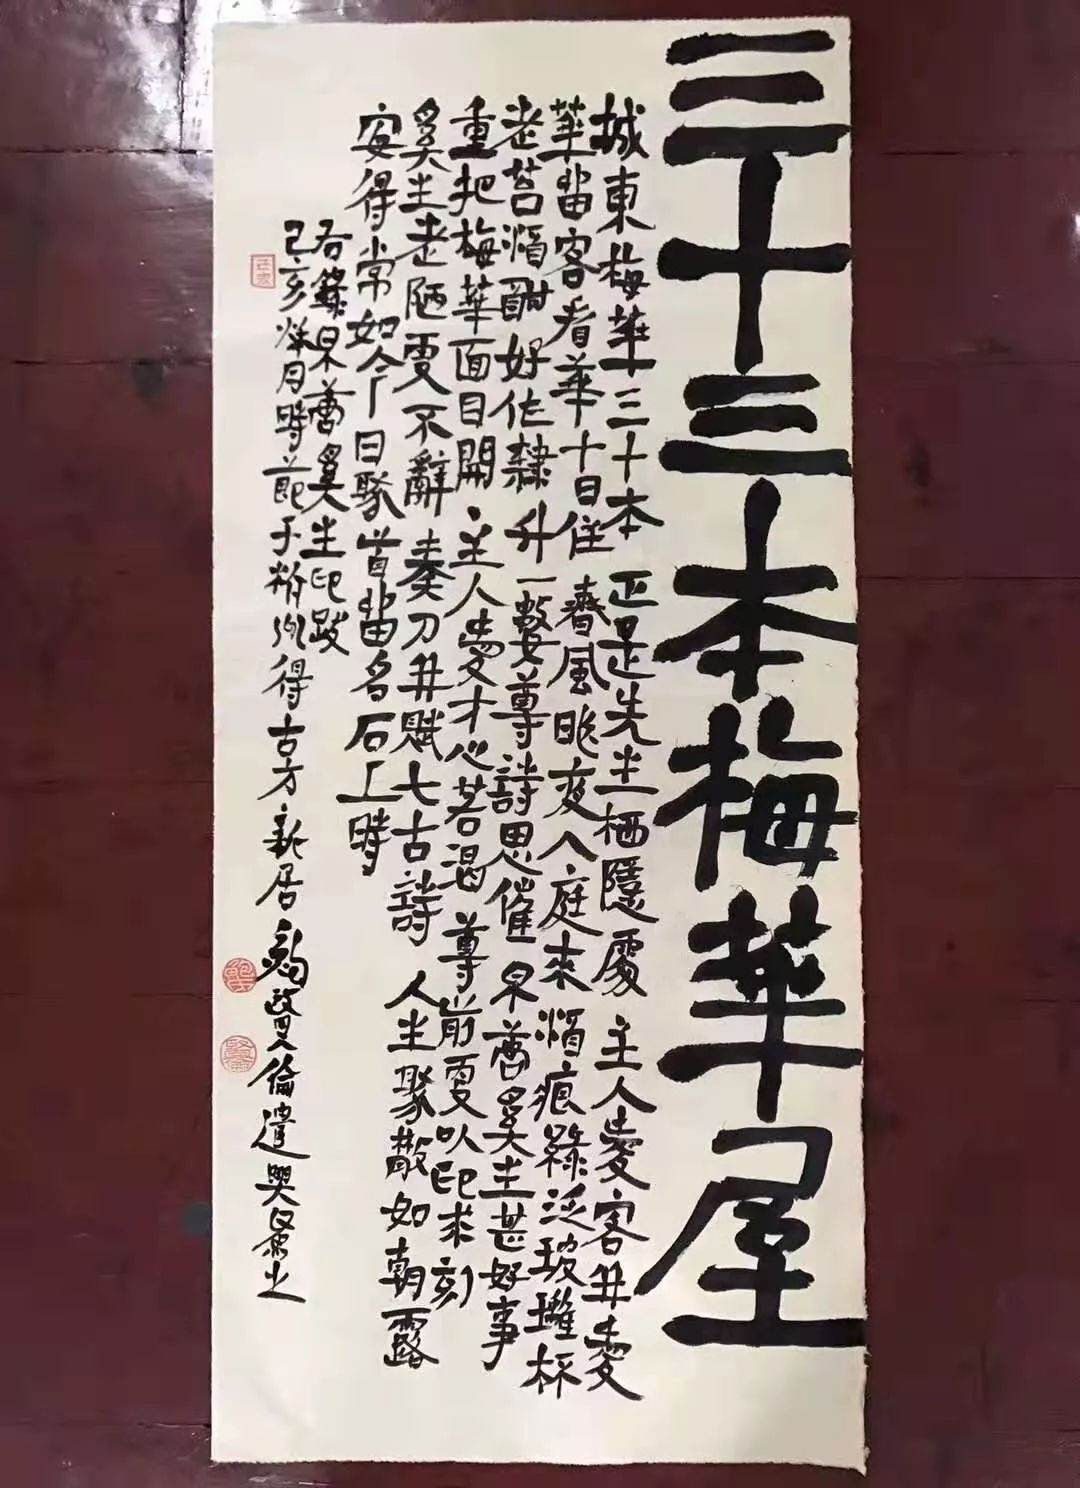 三十三本梅華屋
城東梅華三十本 正是先生栖隱處 主人愛客并愛
華留客看華十日住 春風昨夜入庭來 酒痕綠泛玻瓈杯
老苔酒酣好作隸 升一數尊詩思催 早善奚生甚好事
重把梅華面目開 主人愛才心若渴 尊前更以印求刻
奚生老陋更不辭 奏刀并賦七古詩 人生聚散如朝露
安得常如今日聚首留名石上時
右錄早善奚生印跋
己亥 月時節于 得古方新居 賢倫遣興